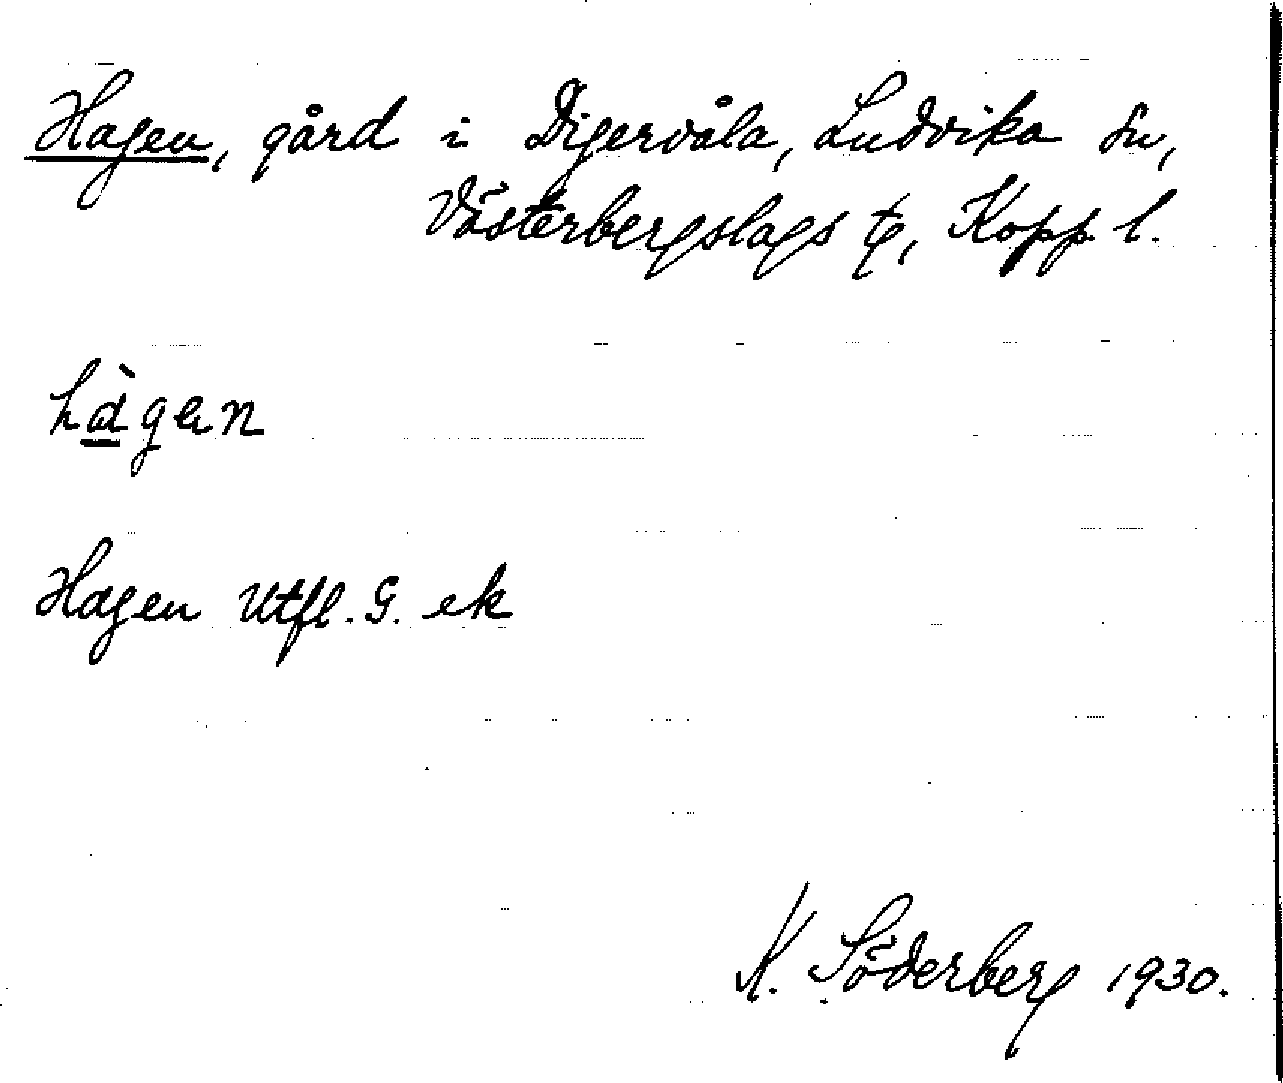 Hagen, gård i Digervåla, Ludvika sn,
Västerbergslags tg, Kopp. l.
hàgen
Hagen Utfl. G. ek
K. Söderberg 1930.